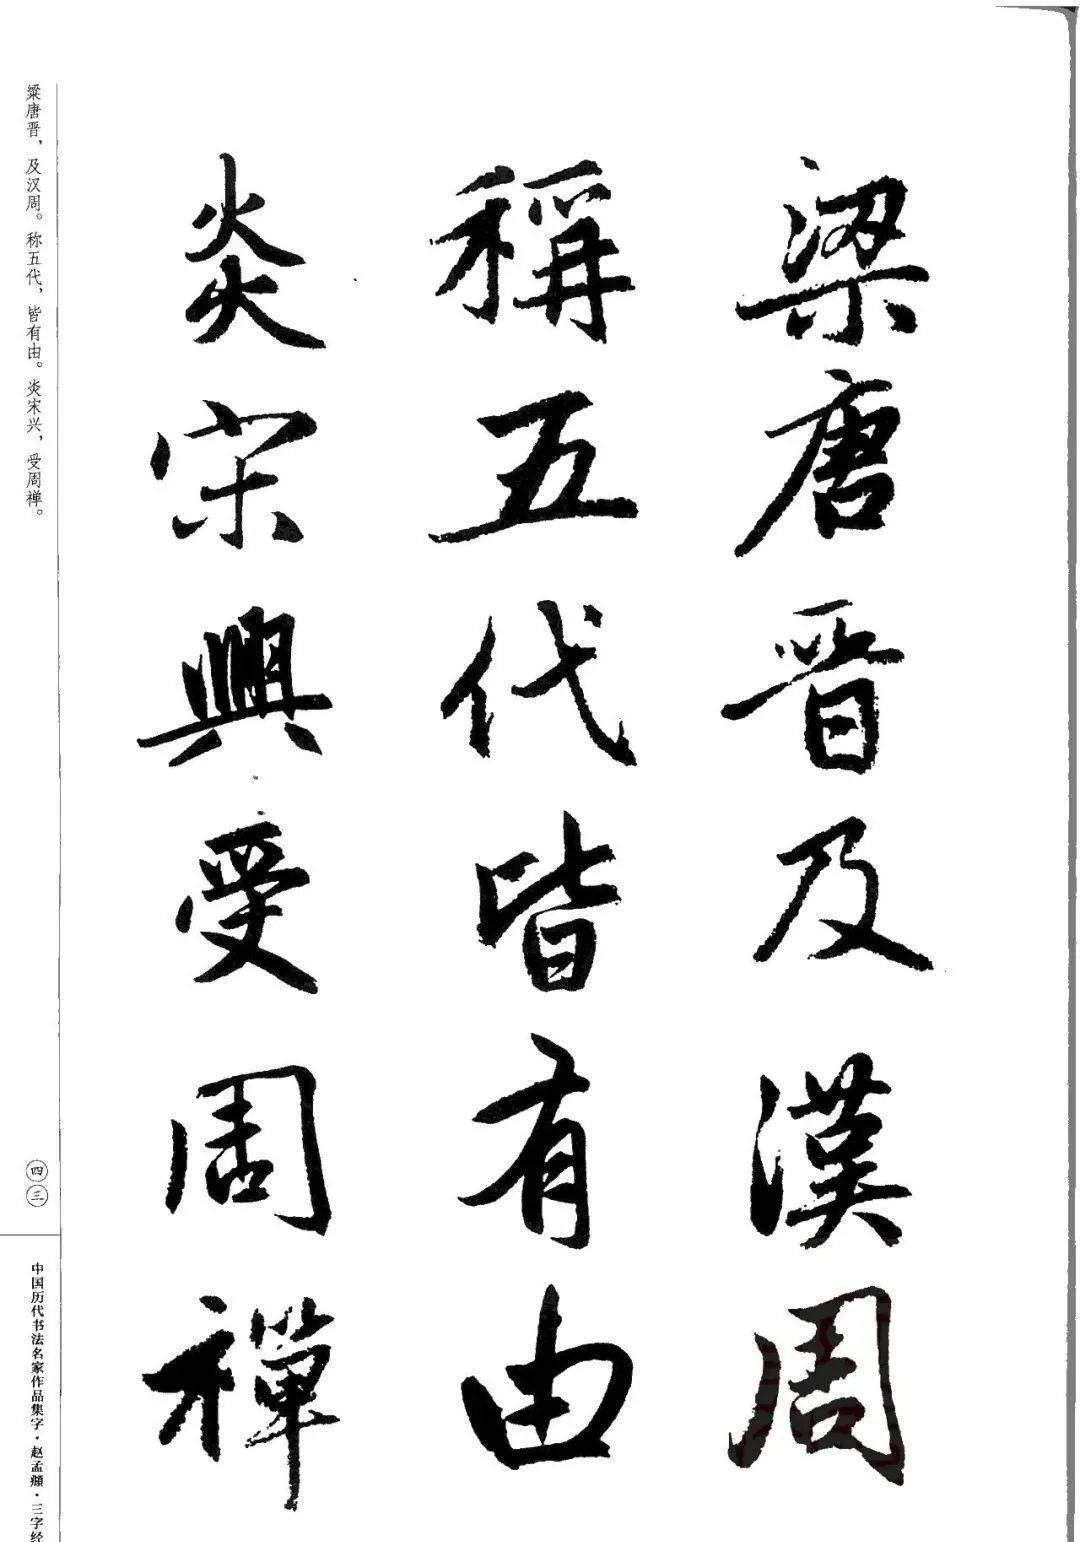 梁唐晋及漢周
稱五代皆有由
炎宋興受周禪
粱唐晋，及汉周。称五代，皆有由。炎宋兴，受周禅。
四三
中国历代书法名家作品集字·赵孟頫·三字经